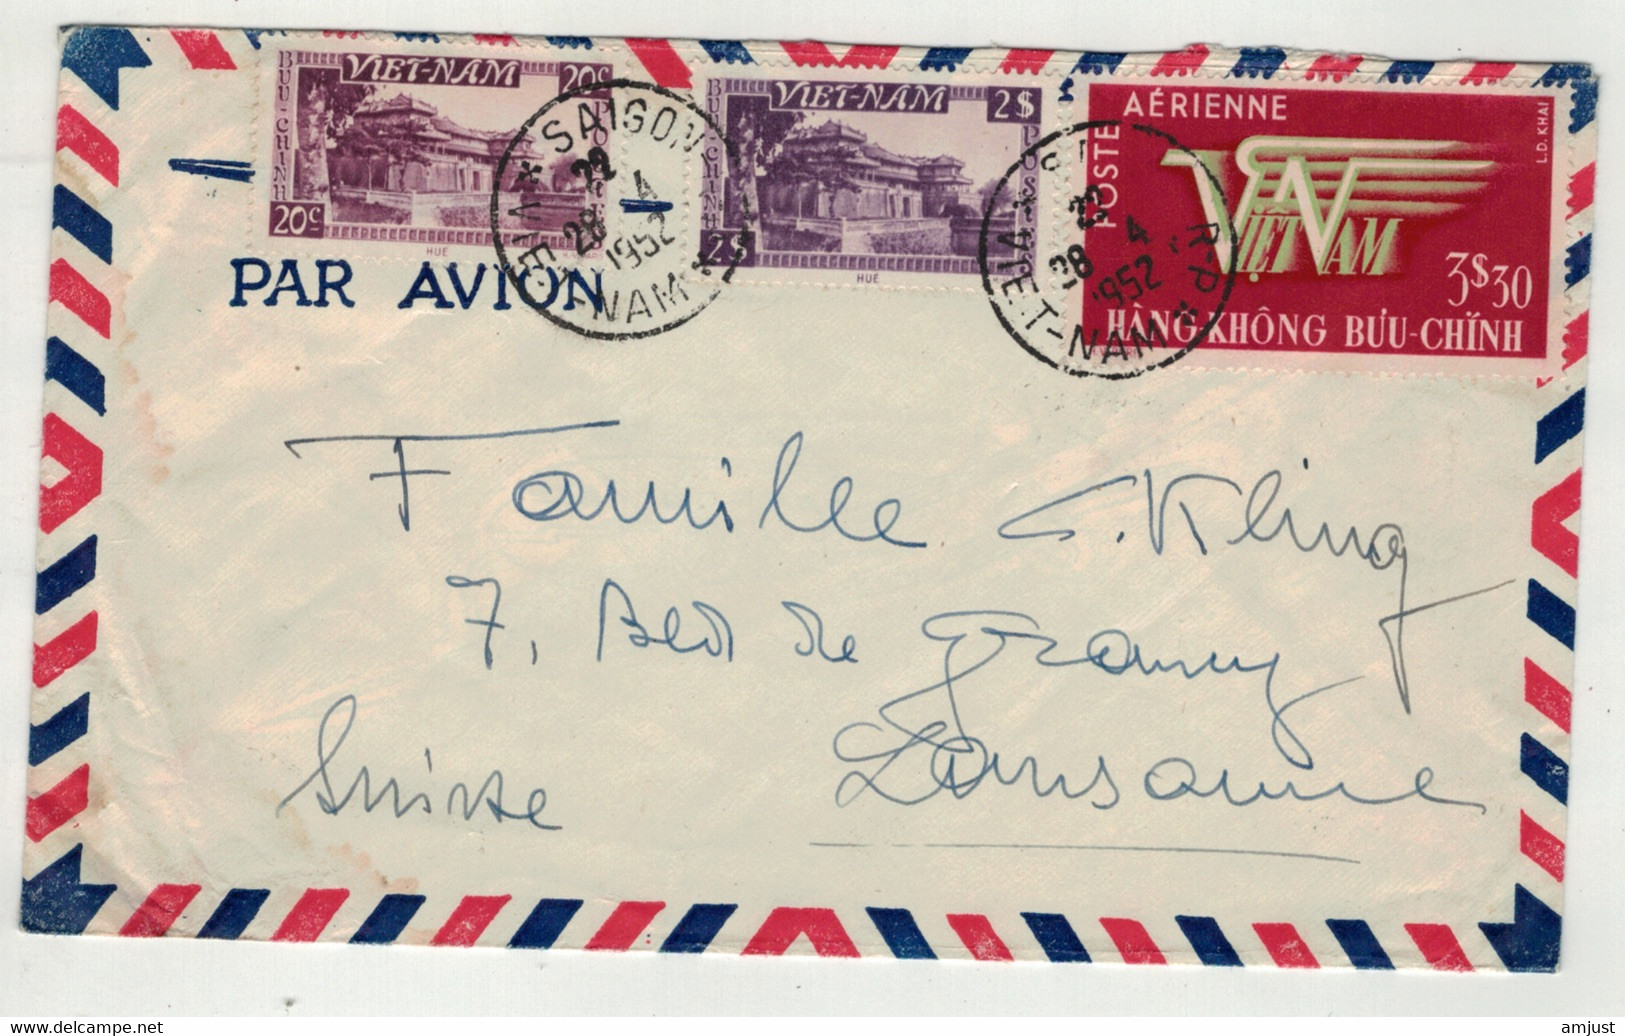 VIET-NAM
20c
BUU-CHINH
POSTES
20c
HUÉ
VIET-NAM
2$
BUU-CHINH
POSTES
2$
HUÉ
POSTE AÉRIENNE
L.D. KHAI
VIỆT NAM
3$30
HÀNG-KHÔNG BƯU-CHÍNH
* SAIGON
22
28 4
1952
VIET-NAM *
R-P
28 4
1952
VIET-NAM *
PAR AVION
Famille C. Kling
7, Bld de Grancy
Lausanne
Suisse
delcampe.net
amjust